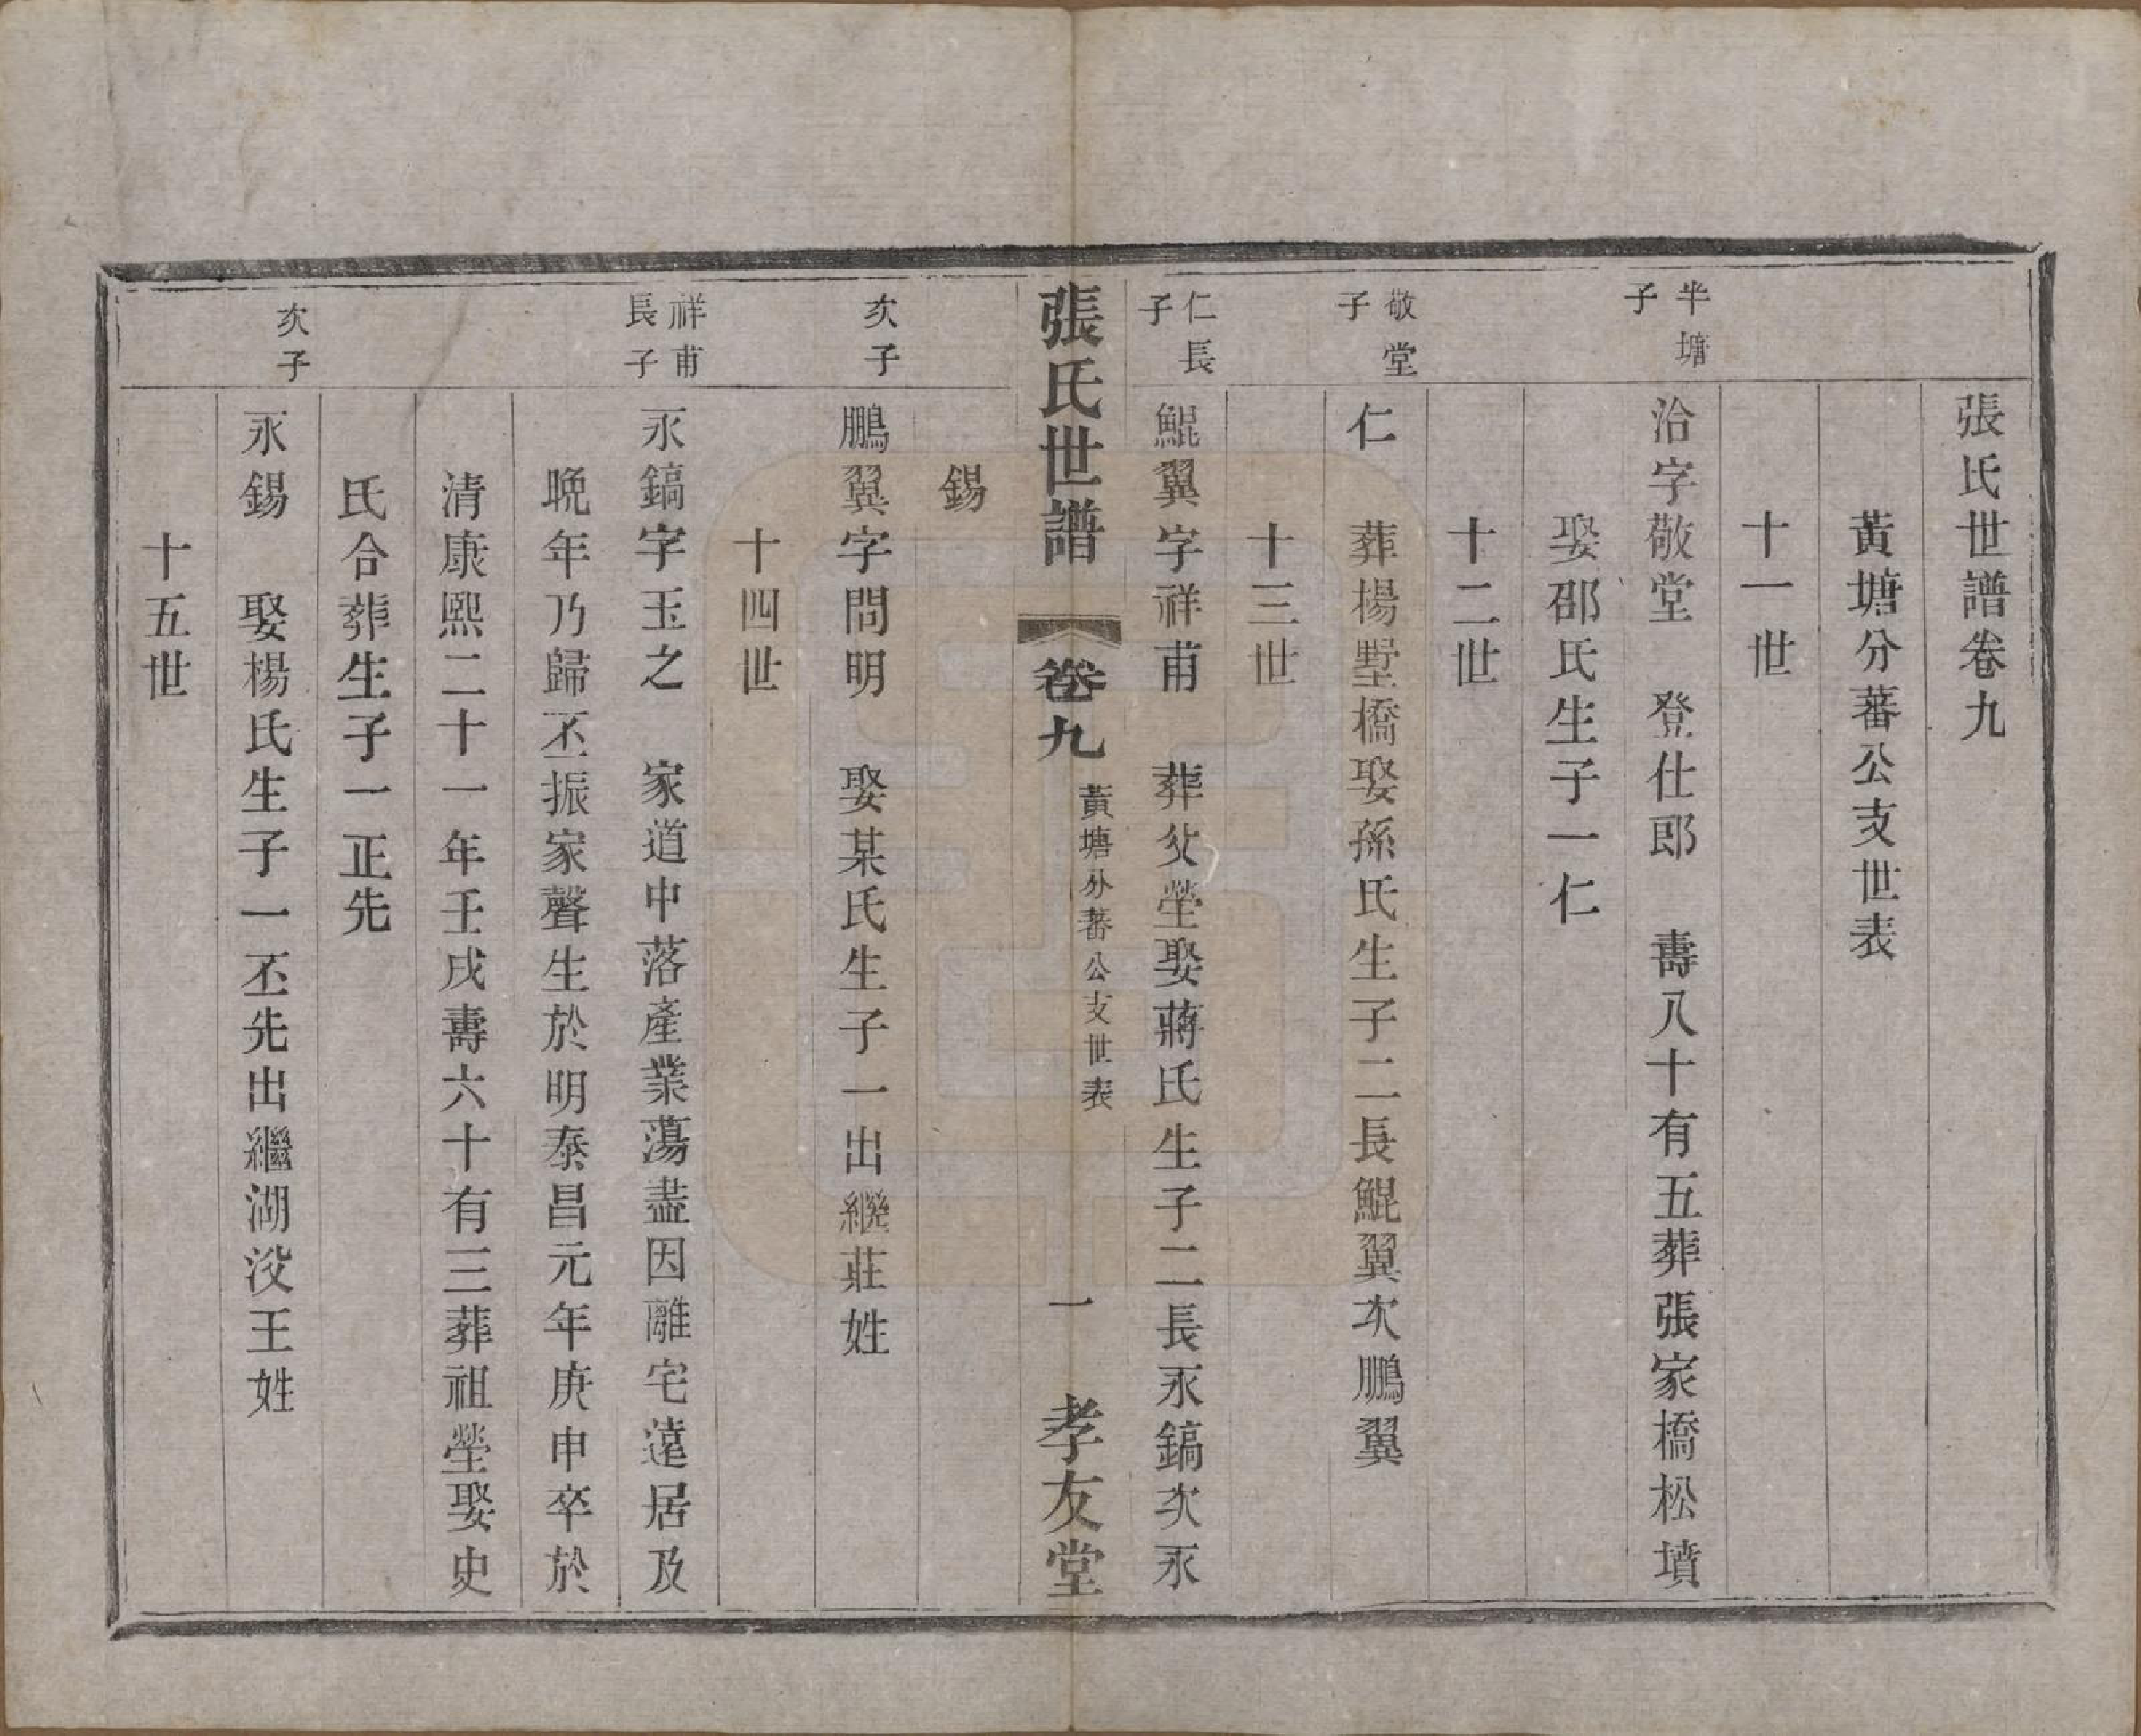 張氏世譜卷九
黃塘分蕃公支世表
十一世
半塘子
洽字敬堂　登仕郎　壽八十有五葬張家橋松墳
娶邵氏生子一仁
十二世
敬堂子
仁　葬楊墅橋娶孫氏生子二長鯤翼次鵬翼
十三世
仁長子
鯤翼字祥甫　葬父塋娶蔣氏生子二長永鎬次永
張氏世譜　卷九　黃塘分蕃公支世表　一　孝友堂
錫
次子
鵬翼字問明　娶某氏生子一出繼莊姓
十四世
祥甫長子
永鎬字玉之　家道中落產業蕩盡因離宅遠居及
晚年乃歸丕振家聲生於明泰昌元年庚申卒於
清康熙二十一年壬戌壽六十有三葬祖塋娶史
氏合葬生子一正先
次子
永錫　娶楊氏生子一丕先出繼湖沒王姓
十五世